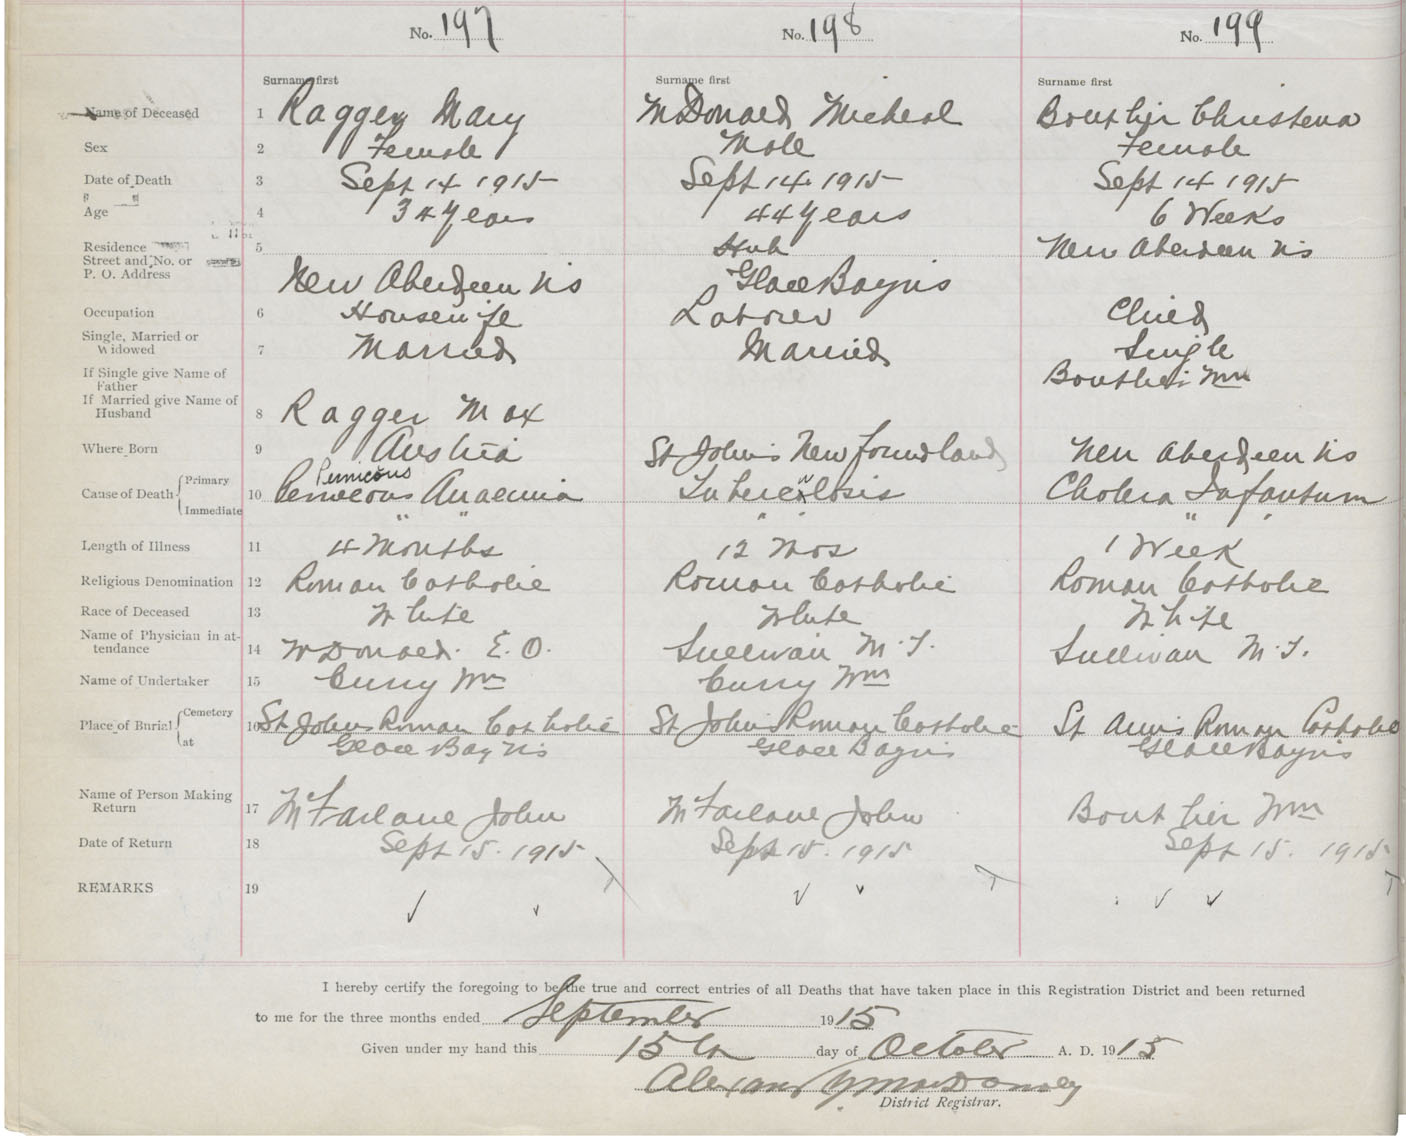 No. 197 No. 198 No. 199
Surname first Surname first Surname first
Name of Deceased 1 Ragger Mary McDonald Micheal Bouthier Christena
Sex 2 Female Male Female
Date of Death 3 Sept 14 1915 Sept 14. 1915 Sept 14 1915
Age 4 34 Years 44 Years 6 Weeks
Residence 5 Hub New Aberdeen NS
Street and No. or
P. O. Address New Aberdeen NS Glace Bay NS
Occupation 6 Housewife Laborer Child
Single, Married or
Widowed 7 Married Married Single
If Single give Name of
Father Bouthier Wm
If Married give Name of
Husband 8 Ragger Max
Where Born 9 Austria St John's Newfoundland New Aberdeen NS
Pernicous
Cause of Death Primary 10 Pernicous Anaemia Tuberculosis Cholera Infantum
Immediate " " " " " "
Length of Illness 11 4 Months 12 Mos 1 Week
Religious Denomination 12 Roman Catholic Roman Catholic Roman Catholic
Race of Deceased 13 White White White
Name of Physician in at-
tendance 14 McDonald. E. O. Sullivan M. T. Sullivan M. T.
Name of Undertaker 15 Curry Wm Curry Wm
Place of Burial Cemetery 16 St Johns Roman Catholic St John's Roman Catholic St Anns Roman Catholic
at Glace Bay NS Glace Bay NS Glace Bay NS
Name of Person Making
Return 17 McFarlane John McFarlane John Bouthier Wm
Date of Return 18 Sept 15. 1915 Sept 15. 1915 Sept 15. 1915
REMARKS 19
I hereby certify the foregoing to be the true and correct entries of all Deaths that have taken place in this Registration District and been returned
to me for the three months ended September 1915
Given under my hand this 15th day of October A. D. 1915
District Registrar.